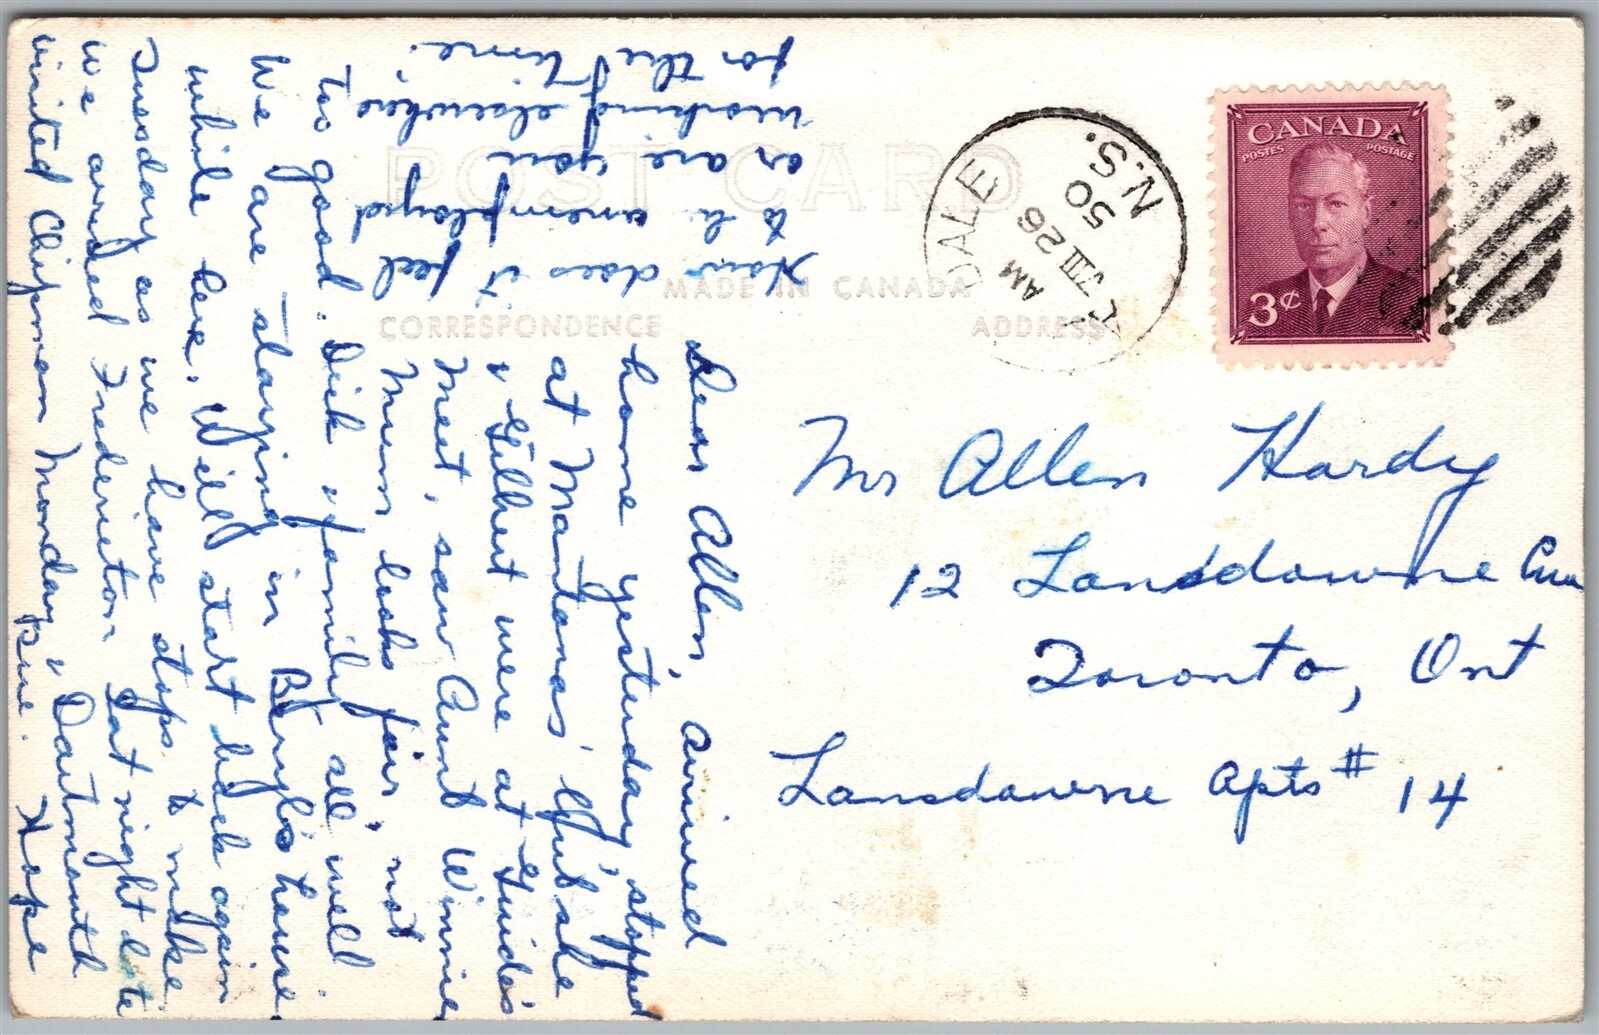 POST CARD
MADE IN CANADA
CORRESPONDENCE
ADDRESS
CANADA
POSTES POSTAGE
3¢
DALE
AM
VIII 26
50
N.S.
Mr Allen Hardy
12 Lansdowne Ave
Toronto, Ont
Lansdowne Apts # 14
Dear Allen, arrived
home yesterday, stopped
at Montonas' but she
& Gilbert were at Guide's
Meet, saw Aunt Winnie
Mum looks fair, not
too good. Dick & family all well
We are staying in Beryl's house
while here. Will start back again
Tuesday as we have stops to make
We arrived Fredericton Sat night late
visited Chipman Monday, & Dartmouth
Hope
How does it feel
to be unemployed
or are you
working elsewhere
for the time.